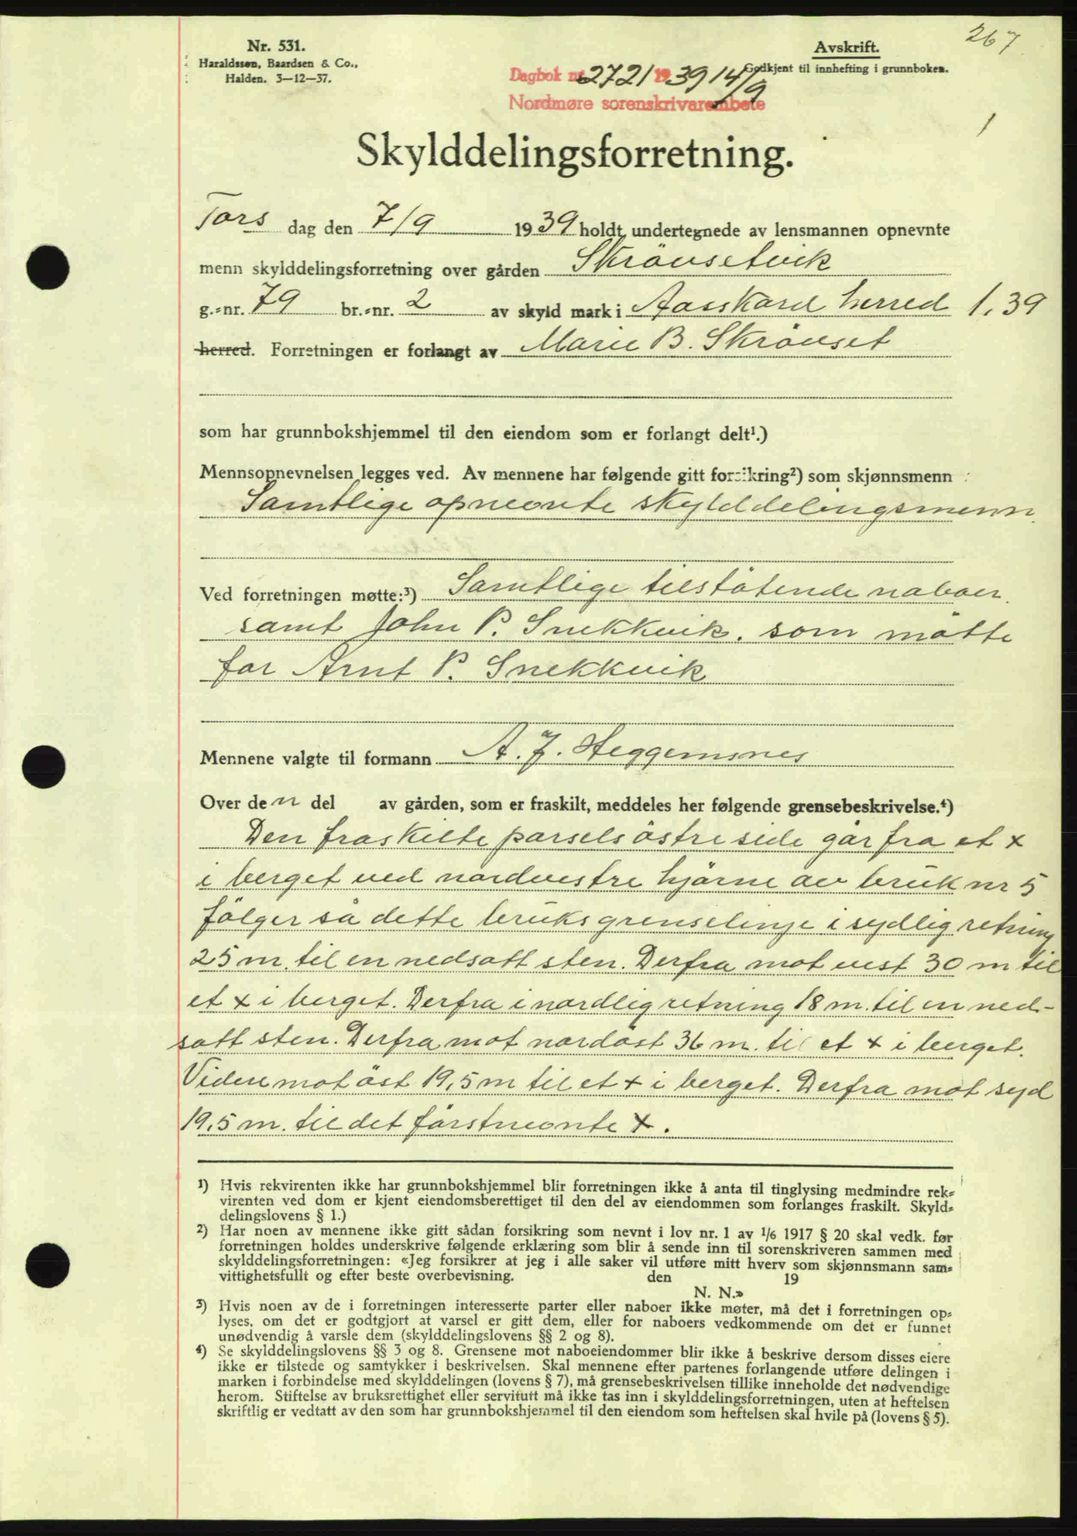 267
Nr. 531.
Haraldssøn, Baardsen & Co.,
Halden. 3—12—37.
Avskrift.
Godkjent til innhefting i grunnboken.
Dagbok nr. 2721 1939 14/9
Nordmøre sorenskrivarembete
1
Skylddelingsforretning.
Tors dag den 7/9 1939 holdt undertegnede av lensmannen opnevnte
menn skylddelingsforretning over gården Skröusetvik
g.-nr. 79 br.-nr. 2 av skyld mark i Aasskard herred 1,39
herred. Forretningen er forlangt av Marie B. Skröuset
som har grunnbokshjemmel til den eiendom som er forlangt delt¹.)
Mennsopnevnelsen legges ved. Av mennene har følgende gitt forsikring²) som skjønnsmenn :
Samtlige opnevnte skylddelingsmenn
Ved forretningen møtte:³) Samtlige tilstötende naboer.
samt John P. Snekkvik. som mötte
for Arnt P. Snekkvik
Mennene valgte til formann A. J. Heggemsnes
Over den del av gården, som er fraskilt, meddeles her følgende grensebeskrivelse.⁴)
Den fraskilte parsels östre side går fra et x
i berget ved nordvestre hjörne av bruk nr 5
fölger så dette bruks grenselinje i sydlig retning
25 m. til en nedsatt sten. Derfra mot vest 30 m til
et x i berget. Derfra i nordlig retning 18 m. til en ned-
satt sten. Derfra mot nordöst 36 m. til et x i berget.
Videre mot öst 19,5 m til et x i berget. Derfra mot syd
19,5 m. til det förstnevnte x.
¹) Hvis rekvirenten ikke har grunnbokshjemmel blir forretningen ikke å anta til tinglysing medmindre rek-
virenten ved dom er kjent eiendomsberettiget til den del av eiendommen som forlanges fraskilt. Skyld-
delingslovens § 1.)
²) Har noen av mennene ikke gitt sådan forsikring som nevnt i lov nr. 1 av 1/6 1917 § 20 skal vedk. før
forretningen holdes underskrive følgende erklæring som blir å sende inn til sorenskriveren sammen med
skylddelingsforretningen: «Jeg forsikrer at jeg i alle saker vil utføre mitt hverv som skjønnsmann sam-
vittighetsfullt og efter beste overbevisning. den 19
N. N.»
³) Hvis noen av de i forretningen interesserte parter eller naboer ikke møter, må det i forretningen op-
lyses, om det er godtgjort at varsel er gitt dem, eller for naboers vedkommende om det er funnet
unødvendig å varsle dem (skylddelingslovens §§ 2 og 8).
⁴) Se skylddelingslovens §§ 3 og 8. Grensene mot naboeiendommer blir ikke å beskrive dersom disses eiere
ikke er tilstede og samtykker i beskrivelsen. Skal mennene efter partenes forlangende utføre delingen i
marken i forbindelse med skylddelingen (lovens § 7), må grensebeskrivelsen tillike inneholde det nødvendige
herom. Stiftelse av bruksrettighet eller servitutt må ikke tas inn i skylddelingsforretningen, uten at heftelsen
skriftlig er vedtatt av den som har grunnbokshjemmel til den eiendom som heftelsen skal hvile på (lovens § 5).